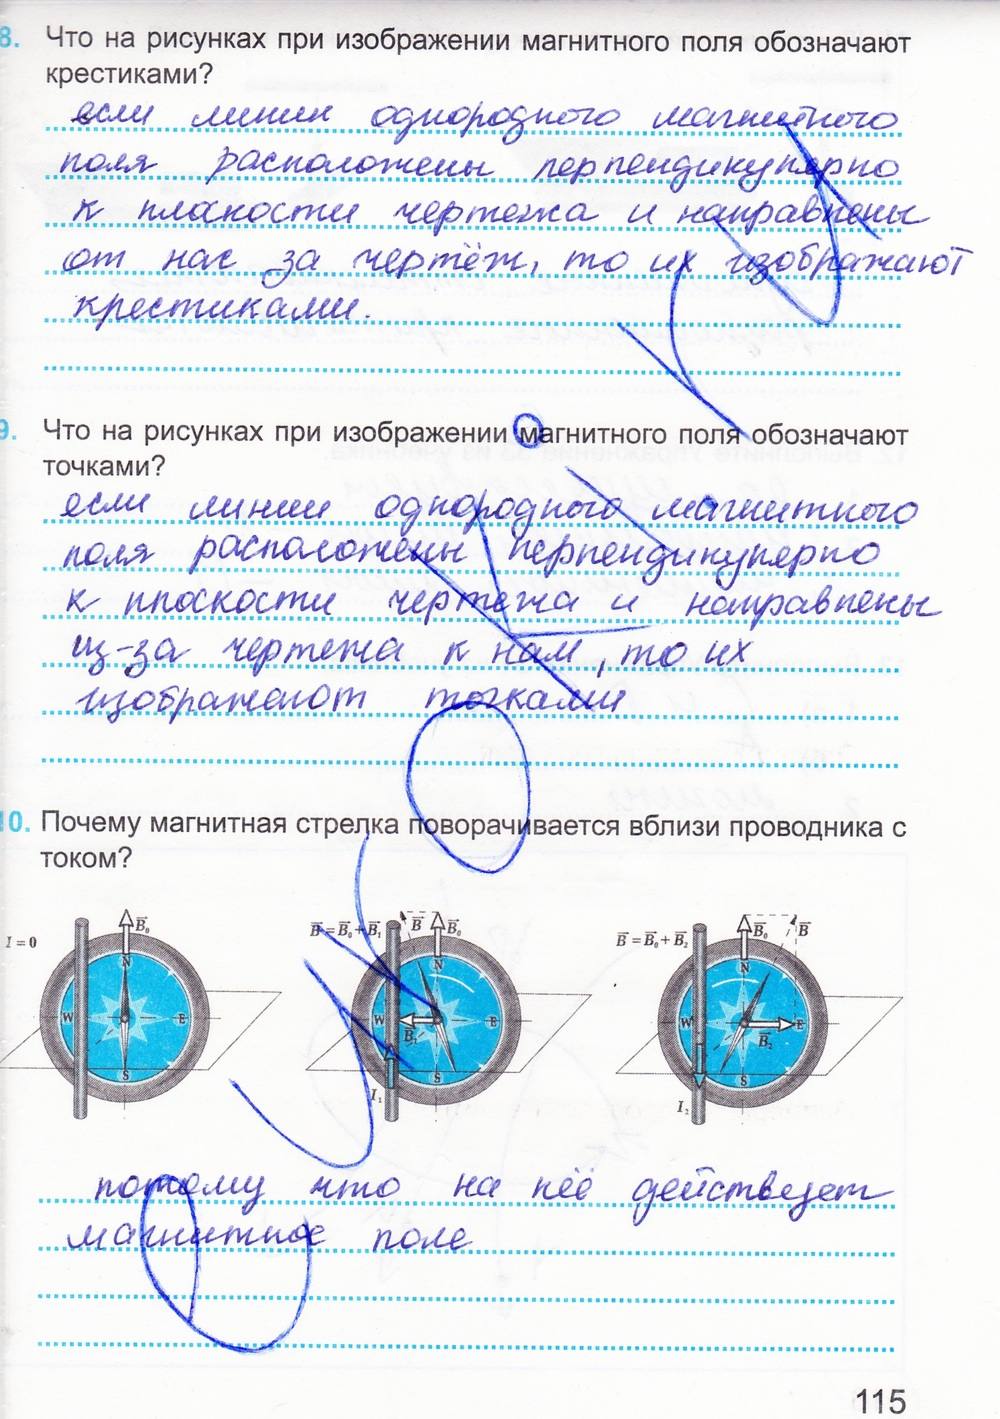 8. Что на рисунках при изображении магнитного поля обозначают
крестиками?
если линии однородного магнитного
поля расположены перпендикулярно
к плоскости чертежа и направлены
от нас за чертёж, то их изображают
крестиками.
9. Что на рисунках при изображении магнитного поля обозначают
точками?
если линии однородного магнитного
поля расположены перпендикулярно
к плоскости чертежа и направлены
из-за чертежа к нам, то их
изображают точками
10. Почему магнитная стрелка поворачивается вблизи проводника с
током?
I = 0 B₀ N W E S
B = B₀ + B₁ B B₀ N W E S B₁ I₁
B = B₀ + B₂ B₀ B N W E S B₂ I₂
потому что на неё действует
магнитное поле
115